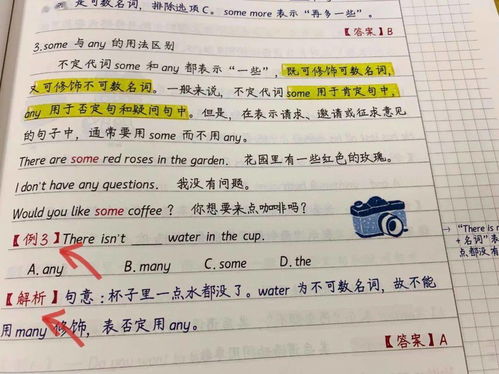 是可数名词，排除选项C。some more 表示“再多一些”。
【答案】B
3.some 与 any 的用法区别
不定代词 some 和 any 都表示“一些”，既可修饰可数名词，
又可修饰不可数名词。一般来说，不定代词some 用于肯定句中，
any 用于否定句和疑问句中。但是，在表示请求、邀请或征求意见
的句子中，通常要用 some 而不用 any。
There are some red roses in the garden. 花园里有一些红色的玫瑰。
I don't have any questions. 我没有问题。
Would you like some coffee？ 你想要来点咖啡吗？
【例3】There isn't ____ water in the cup.
A. any B. many C. some D. the
【解析】句意：杯子里一点水都没了。water 为不可数名词，故不能
用 many 修饰，表否定用 any。
【答案】A
“There is
+ 名词”表
点都没有